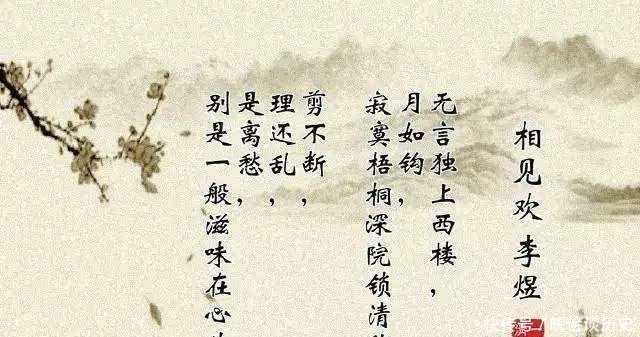 相见欢 李煜
无言独上西楼，
月如钩，
寂寞梧桐深院锁清
剪不断，
理还乱，
是离愁，
别是一般滋味在心
快传号 / 谈历史